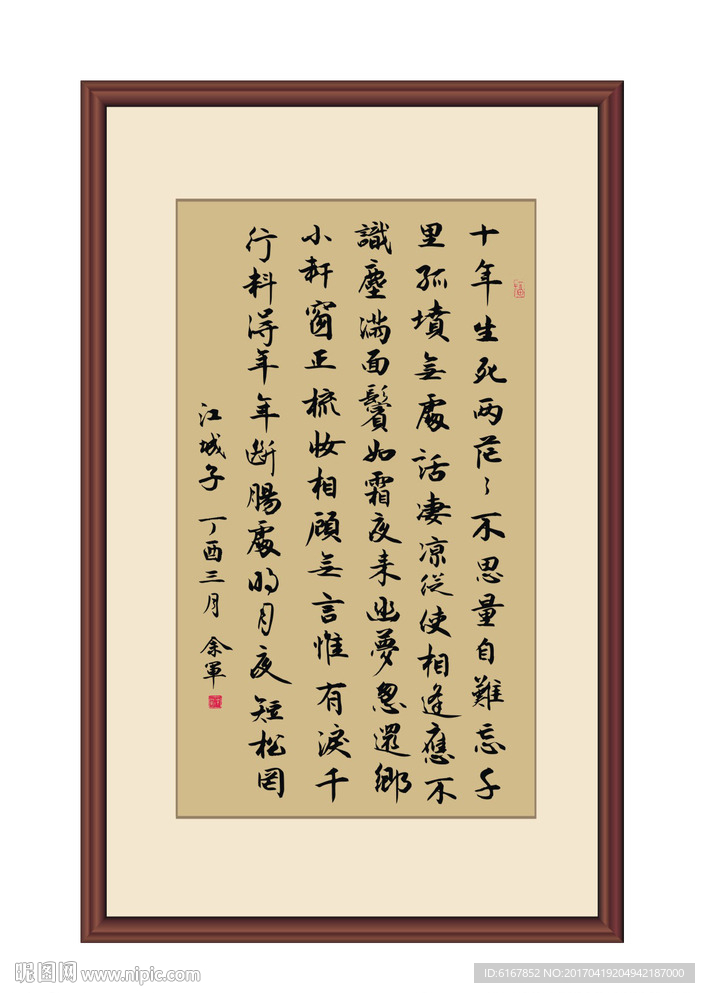 十年生死两茫〻不思量自難忘千
里孤墳無處話凄凉從使相逢應不
識塵滿面鬢如霜夜来幽夢忽還鄉
小軒窗正梳妆相顧無言惟有淚千
行料得年年斷腸處明月夜短松岡
江城子 丁酉三月 余軍
昵图网 www.nipic.com
ID:6167852 NO:20170419204942187000